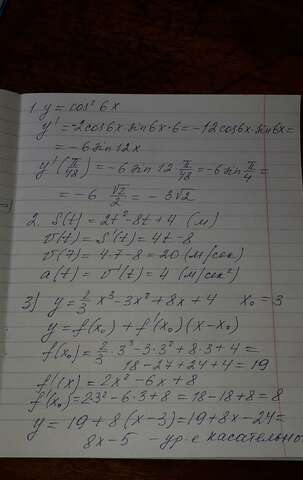 1. y = cos² 6x
y' = -2cos6x·sin6x·6 = -12cos6x·sin6x =
= -6 sin 12x
y'(π/48) = -6 sin 12 π/48 = -6 sin π/4 =
= -6 √2/2 = -3√2
2. S(t) = 2t² - 8t + 4 (м)
v(t) = S'(t) = 4t - 8
v(7) = 4·7 - 8 = 20 (м/сек)
a(t) = v'(t) = 4 (м/сек²)
3) y = 2/3 x³ - 3x² + 8x + 4 x₀ = 3
y = f(x₀) + f'(x₀)(x - x₀)
f(x₀) = 2/3·3³ - 3·3² + 8·3 + 4 =
18 - 27 + 24 + 4 = 19
f'(x) = 2x² - 6x + 8
f'(x₀) = 2·3² - 6·3 + 8 = 18 - 18 + 8 = 8
y = 19 + 8(x - 3) = 19 + 8x - 24 =
8x - 5 - ур-е касательно